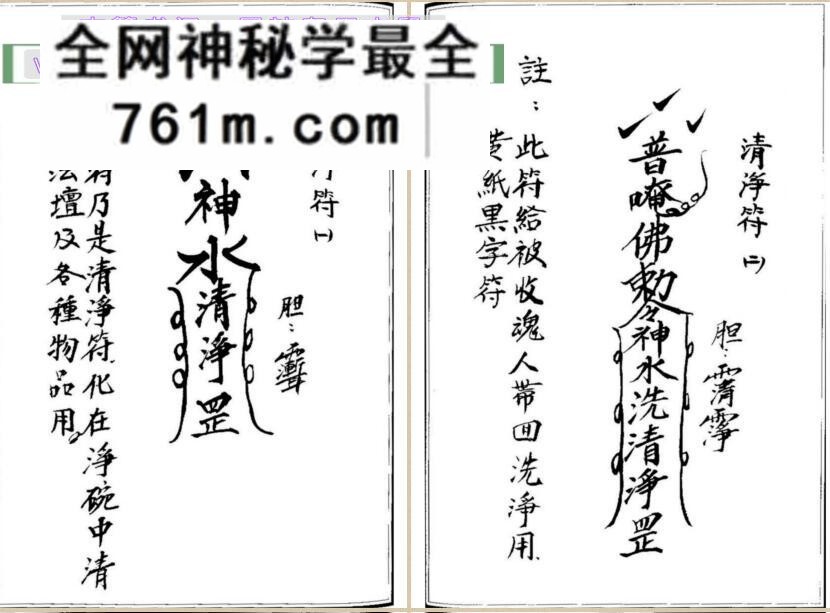 全网神秘学最全
761m.com
清淨符(二)
普唵佛勅令神水洗清淨罡
胆：
註：此符給被收魂人帶回洗淨用.
黄紙黑字符
符(一)
神水清淨罡
胆：
符乃是清淨符.化在淨碗中清
法壇及各種物品用。